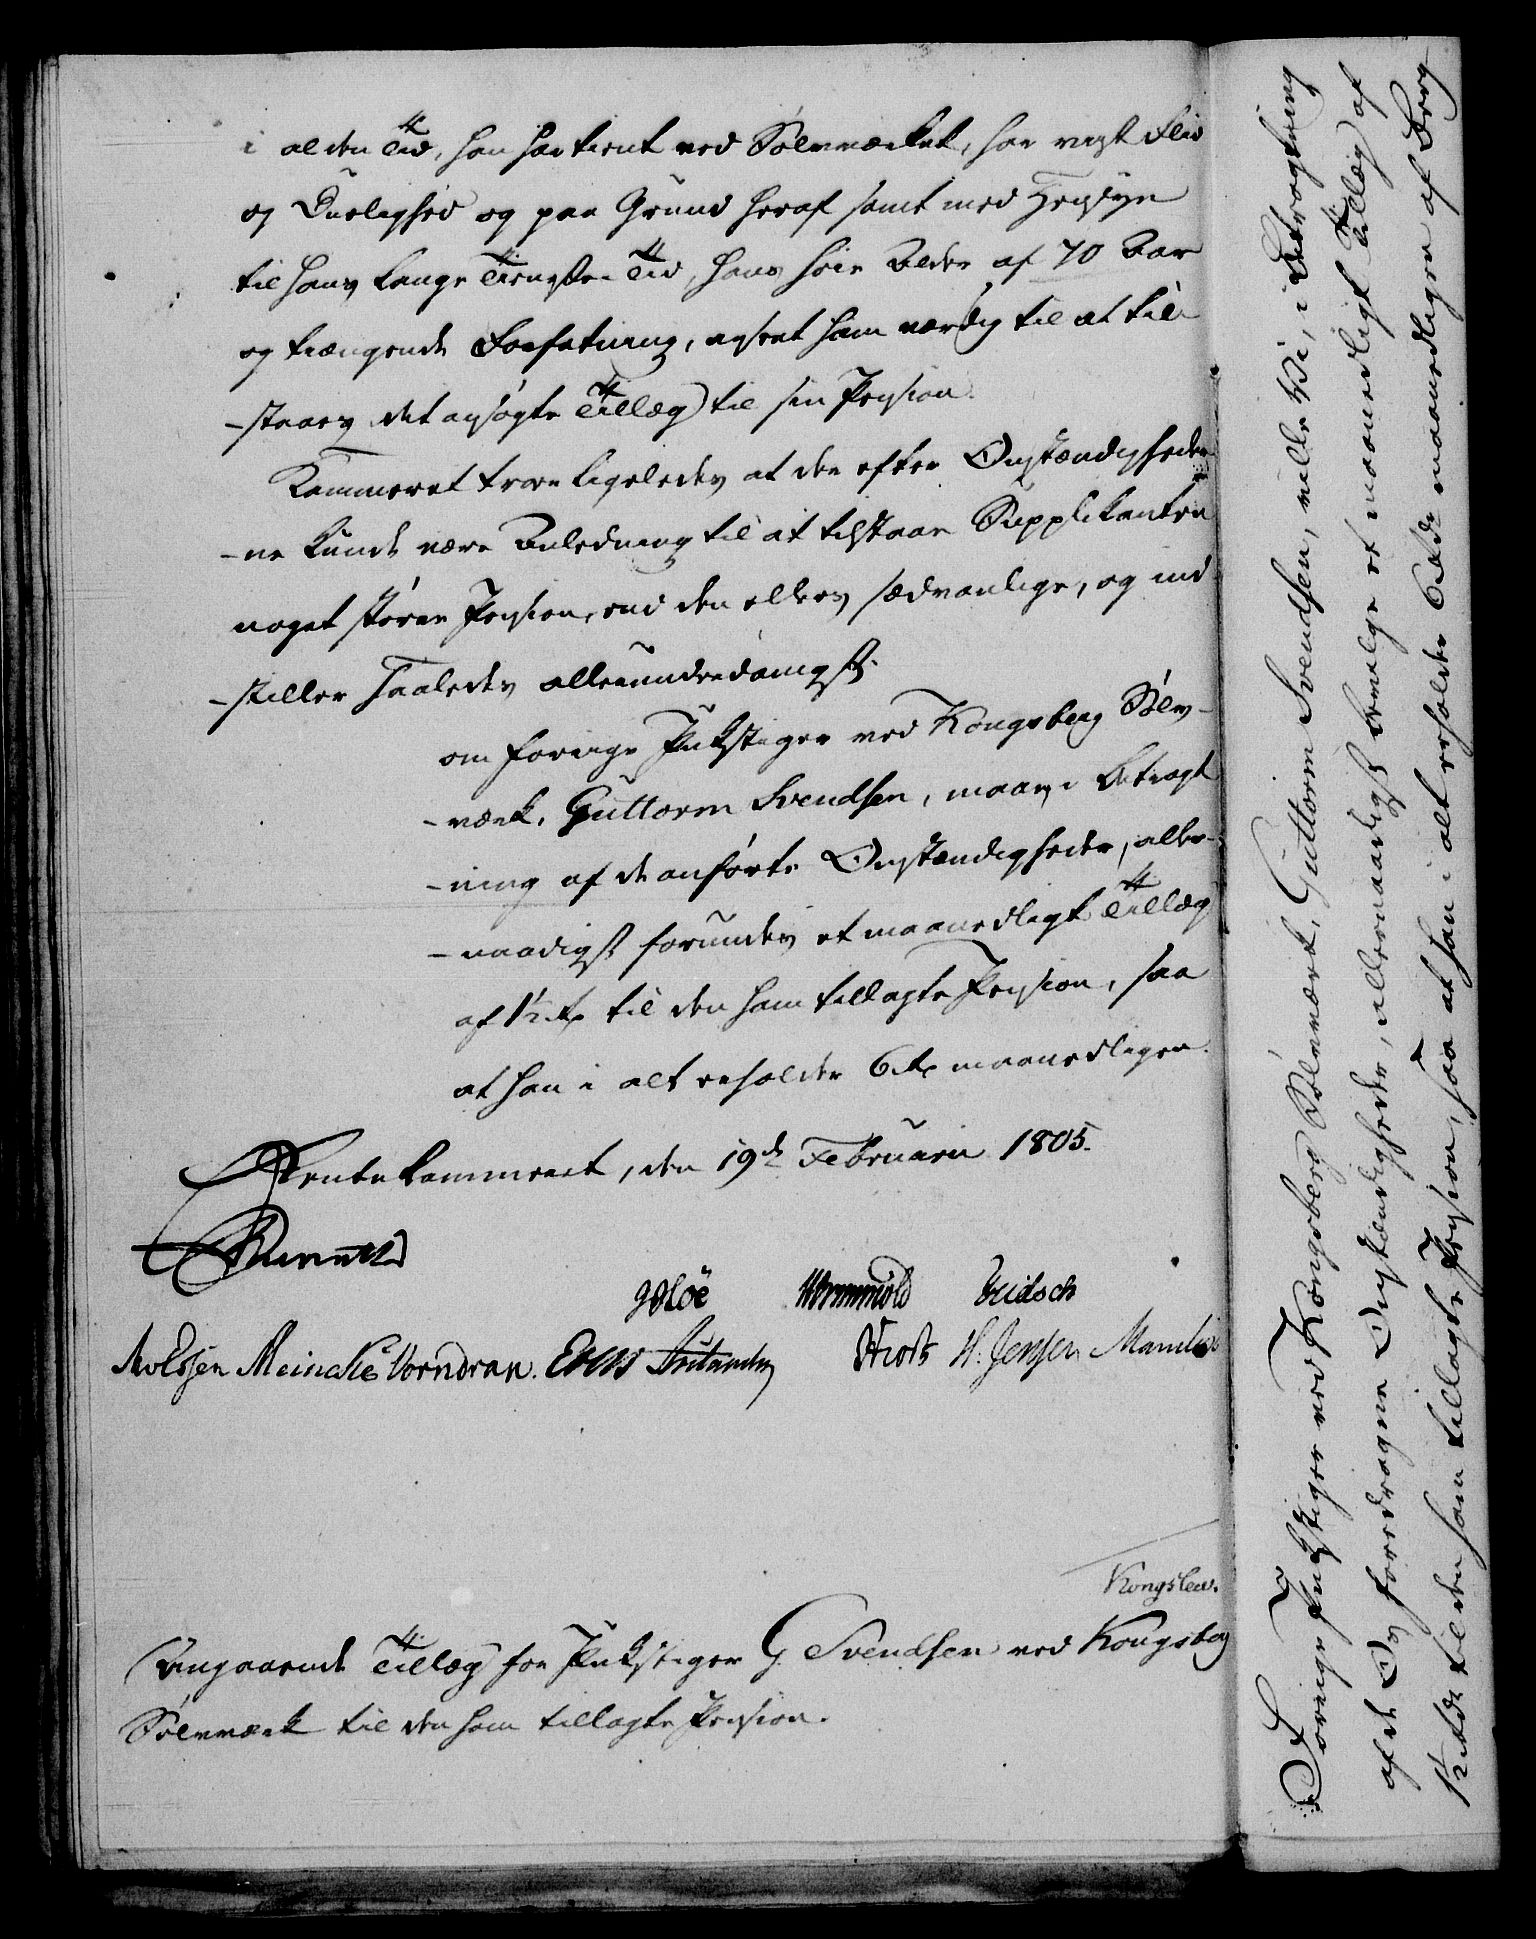 i al den Tid, han har tient ved Sølvværket, har viist Flid
og Duelighed og paa Grund heraf samt med Hensyn
til hans lange Tieneste-Tid, hans høie Alder af 70 Aar
og trængende Forfatning, anseet ham værdig til at til-
-staaes det ansøgte Tillæg til sin Pension.
Kammeret troer ligeledes at der efter Omstændigheder-
-ne kunde være Anledning til at tilstaae Supplikanten
noget større Pension, end den ellers sædvanlige, og ind-
-stiller saaledes allerunderdanigst:
om forrige Pukstiger ved Kongsberg Sølv-
-værk, Guttorm Svendsen, maae, i Betragt-
-ning af de anførte Omstændigheder, aller-
-naadigst forundes et maanedligt Tillæg
af 1½ rd til den ham tillagte Pension, saa
at han i alt erholder 6 rd maanedligen.
Rentekammeret, den 19de Februarii 1805.
Wormskiold
Meincke Vorndran
H. Jensen
Kongslew.
Angaaende Tillæg for Pukstiger G Svendsen ved Kongsberg
Sølvværk til den ham tillagte Pension.
Forrige Pukstiger ved Kongsberg Sølvværk, Guttorm Svendsen, ville Vi, i Betragtning
af de Os foredragne Omstændigheder, allernaadigst bevilge et maanedligt Tillæg af
1½ rd til den ham tillagte Pension, saa at han i alt erholder 6 rd maanedligen af Berg-